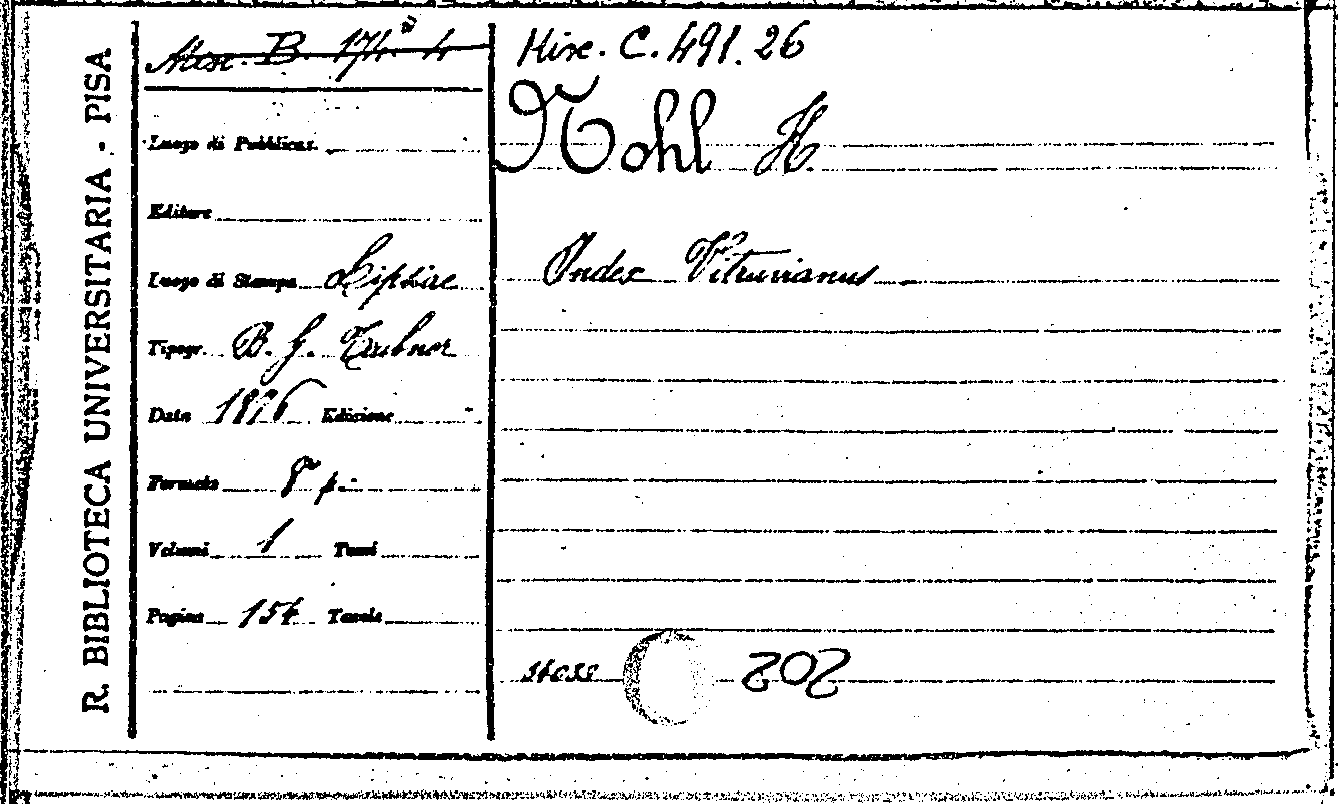 R. BIBLIOTECA UNIVERSITARIA - PISA
Misc. B. 174 4
Misc. C. 491.26
Nohl H.
Luogo di Pubblicaz.
Editore
Luogo di Stampa Lipsiae
Index Vitruvianus
Tipogr. B. G. Teubner
Data 1876 Edizione
Formato 8° p.
Volumi 1 Tomi
Pagine 154 Tavole
202